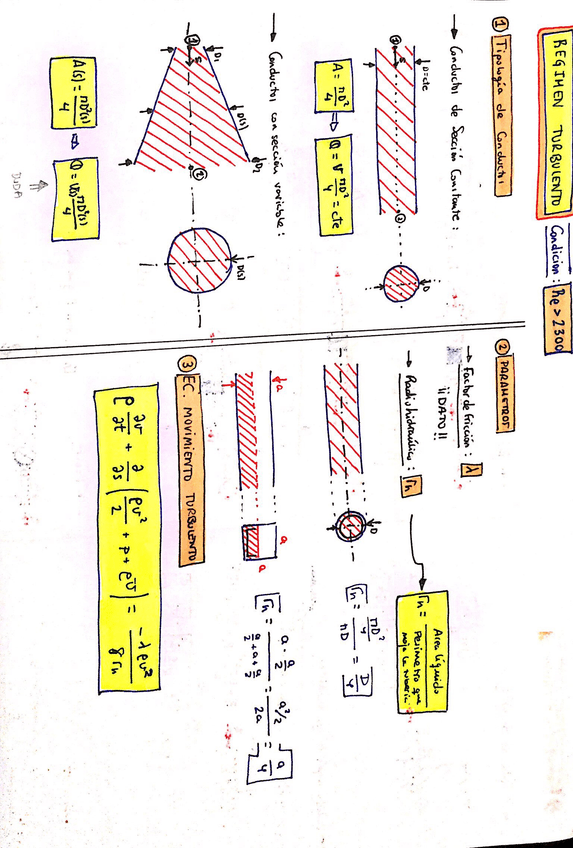 REGIMEN TURBULENTO
Condicion: Re > 2300
① Tipología de Conductos
→ Conductos de Sección Constante:
① s D=cte ② D
A = πD²/4 ⇒ Q = v πD²/4 = cte
→ Conductos con sección variable:
① s D₁ D(s) D₂ ② D(s)
A(s) = πD²(s)/4 ⇒ Q = v(s) πD²(s)/4
DUDA
② PARAMETROS
→ Factor de fricción: λ
¡¡DATO!!
→ Radio hidráulico: rh
rh = Area líquido / Perimetro que moja la tubería
D
rh = (πD²/4)/(πD) = D/4
a a a
rh = (a · a/2)/(a/2 + a + a/2) = (a²/2)/(2a) = a/4
③ EC. MOVIMIENTO TURBULENTO
ρ ∂v/∂t + ∂/∂s (ρv²/2 + p + ρU) = -λρv²/8rh